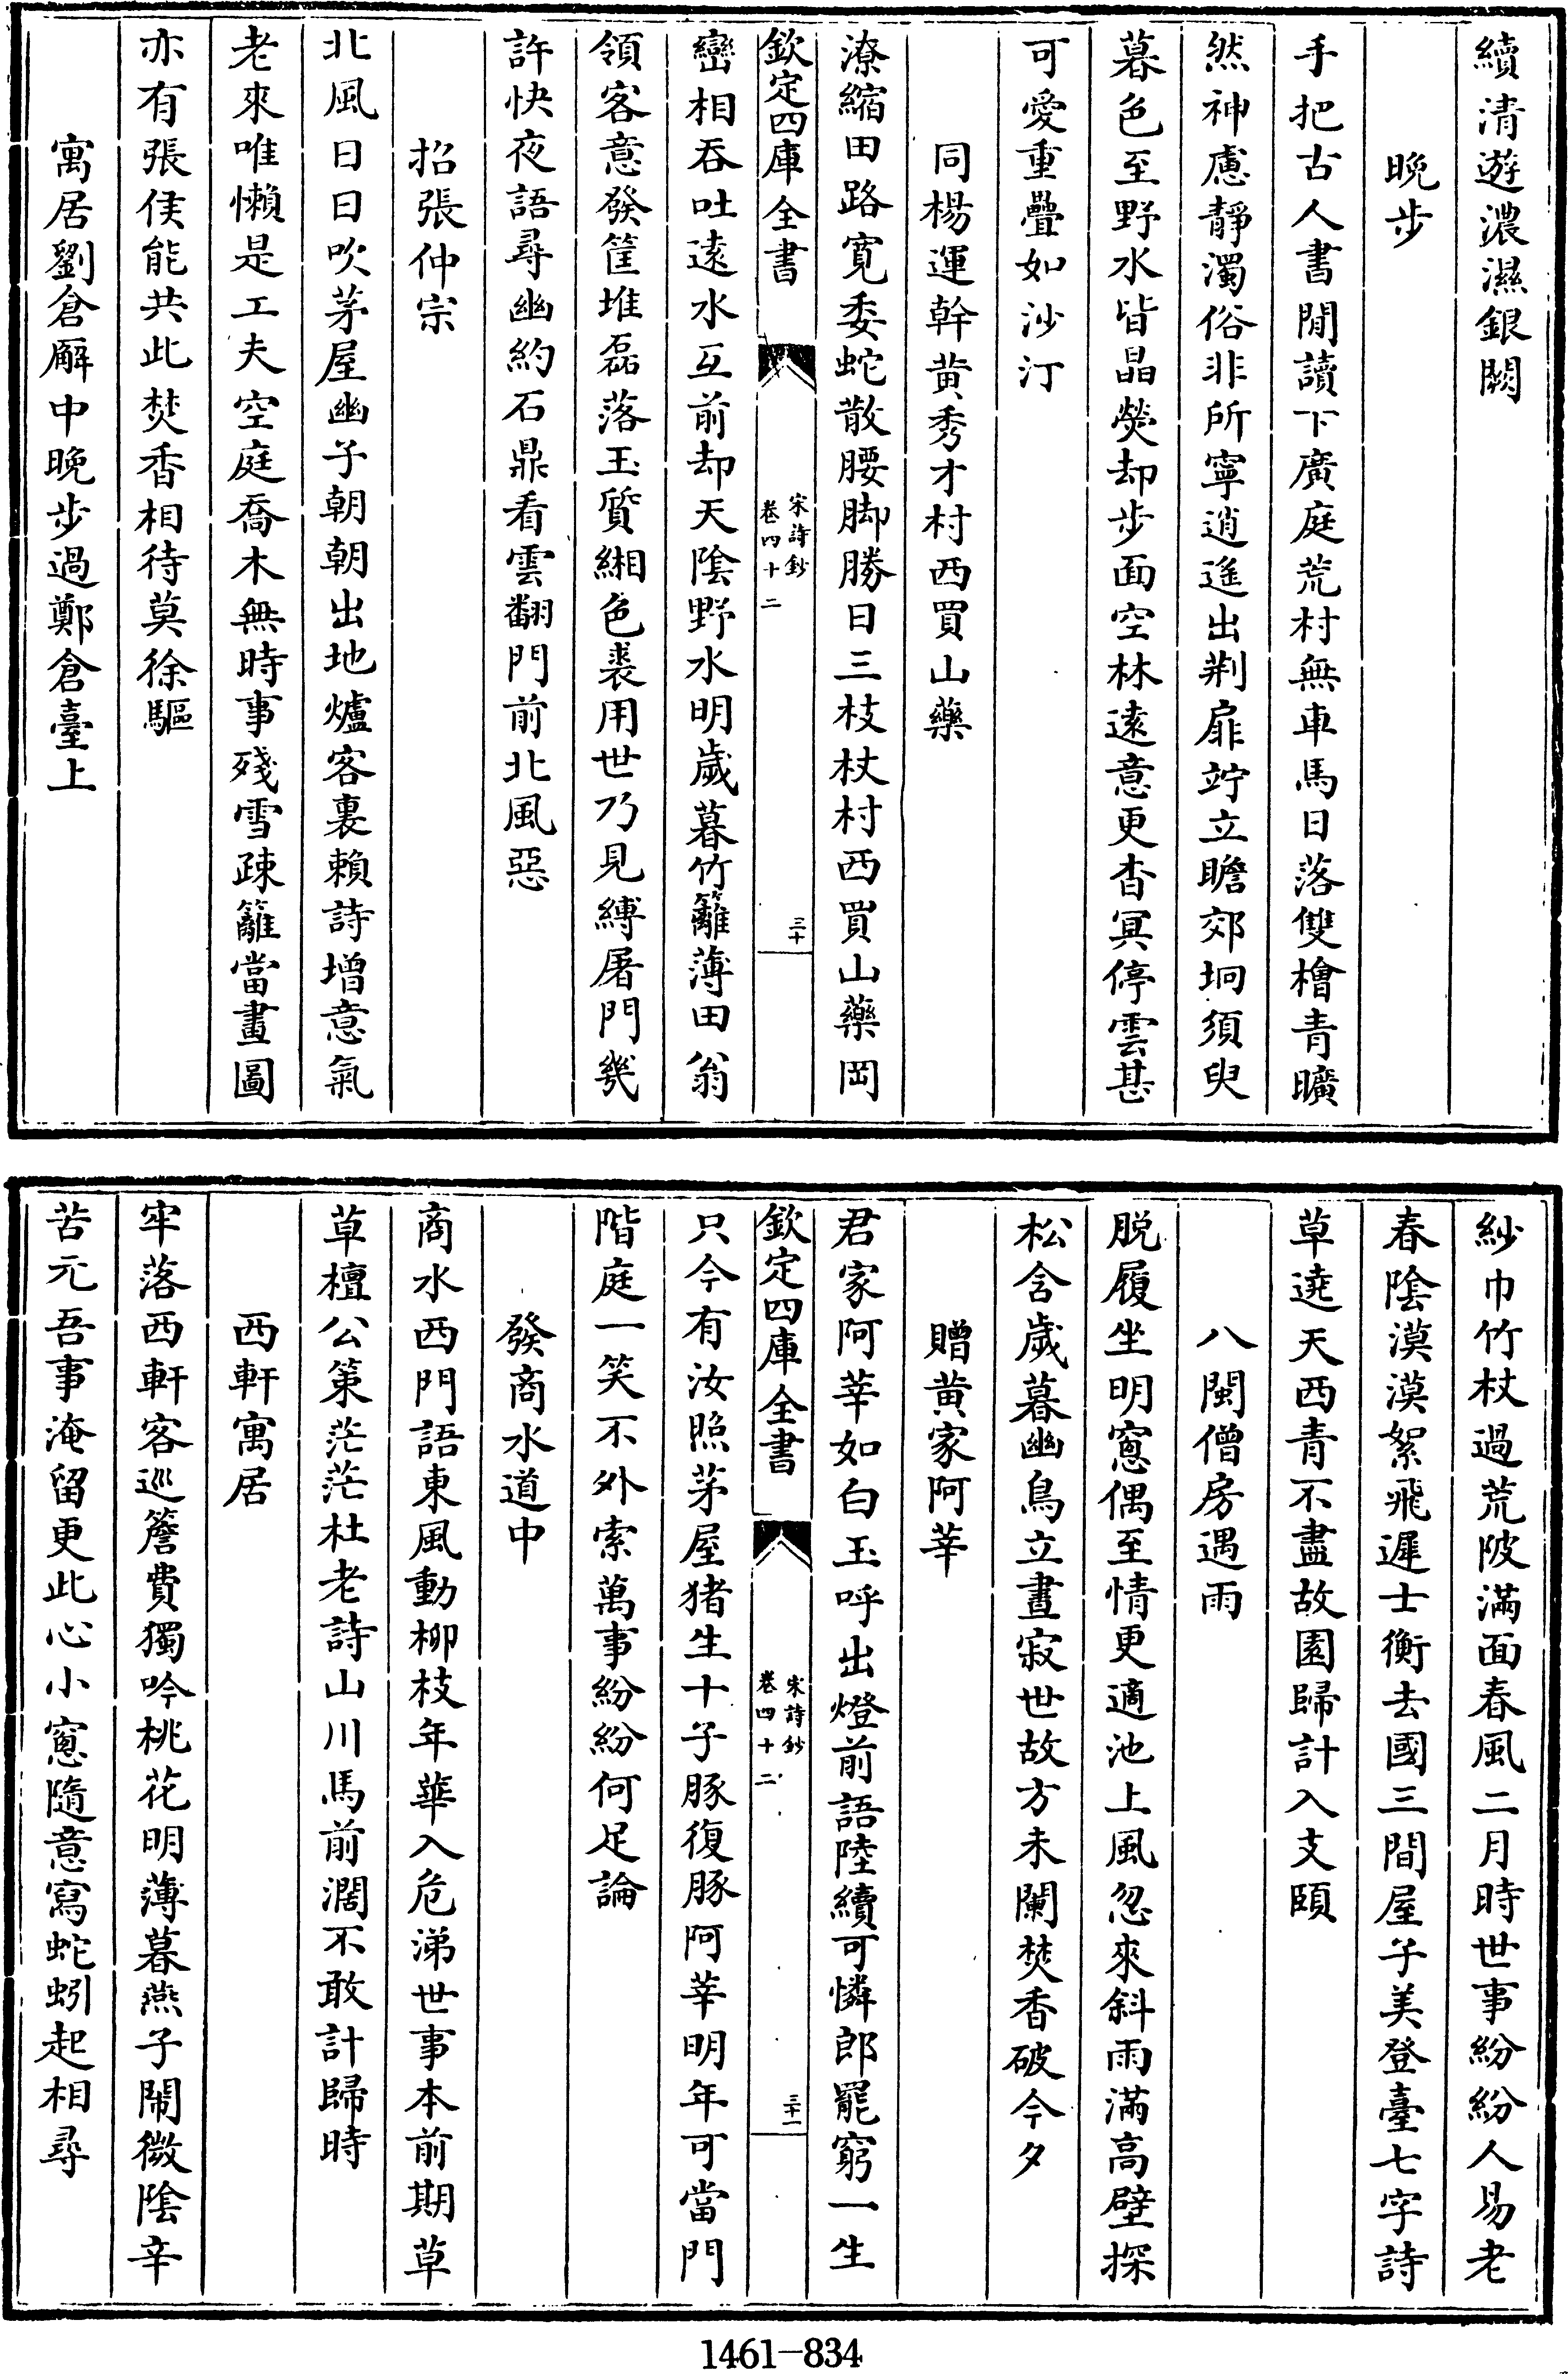 續清遊濃濕銀闕
晚步
手把古人書閒讀下廣庭荒村無車馬日落雙檜青曠
然神慮靜濁俗非所寧逍遙出荆扉竚立瞻郊坰須臾
暮色至野水皆晶熒却步面空林逺意更杳冥停雲甚
可愛重疊如沙汀
同楊運幹黄秀才村西買山藥
潦縮田路寛委蛇散腰脚勝日三枝杖村西買山藥岡
欽定四庫全書
宋詩鈔
卷四十二
三十
巒相吞吐逺水互前却天隂野水明嵗暮竹籬薄田翁
領客意發筐堆磊落玉質緗色裘用世乃見縛屠門幾
許快夜語尋幽約石鼎看雲翻門前北風惡
招張仲宗
北風日日吹茅屋幽子朝朝出地爐客裏賴詩增意氣
老來唯懶是工夫空庭喬木無時事殘雪疎籬當畫圖
亦有張侯能共此焚香相待莫徐驅
寓居劉倉廨中晚步過鄭倉臺上
紗巾竹杖過荒陂滿面春風二月時世事紛紛人易老
春隂漠漠絮飛遲士衡去國三間屋子美登臺七字詩
草遶天西青不盡故園歸計入支頤
八閩僧房遇雨
脱履坐明窻偶至情更適池上風忽來斜雨滿高壁探
松含嵗暮幽鳥立晝寂世故方未闌焚香破今夕
贈黄家阿莘
君家阿莘如白玉呼出燈前語陸續可憐郎罷窮一生
欽定四庫全書
宋詩鈔
卷四十二
三十一
只今有汝照茅屋猪生十子豚復豚阿莘明年可當門
階庭一笑不外索萬事紛紛何足論
發商水道中
商水西門語東風動栁枝年華入危涕世事本前期草
草檀公策茫茫杜老詩山川馬前濶不敢計歸時
西軒寓居
牢落西軒客巡簷費獨吟桃花明薄暮燕子鬧微隂辛
苦元吾事淹留更此心小窻隨意寫蛇蚓起相尋
1461-834